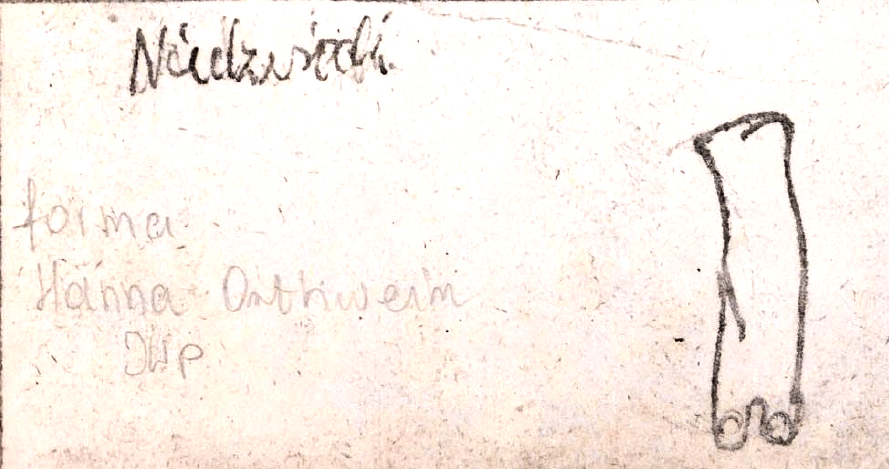 Niedźwiedzi
forma
Hanna Orthwein
JWP